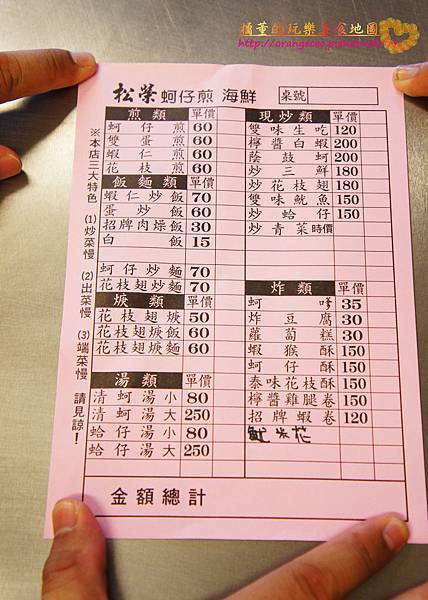 橘董的玩樂美食地圖
松榮 蚵仔煎 海鮮 桌號
※本店三大特色 (1)炒菜慢 (2)出菜慢 (3)端菜慢 請見諒!
煎類 單價
蚵仔煎 60
雙蛋煎 60
蝦仁煎 60
花枝煎 60
飯麵類 單價
蝦仁炒飯 70
蛋炒飯 60
招牌肉燥飯 30
白飯 15
蚵仔炒麵 70
花枝翅炒麵 70
焿類 單價
花枝翅焿 50
花枝翅焿飯 60
花枝翅焿麵 60
湯類 單價
清蚵湯小 80
清蚵湯大 250
蛤仔湯小 80
蛤仔湯大 250
現炒類 單價
雙味生吃 120
檸醬白蝦 200
蔭豉蚵 200
炒三鮮 180
炒花枝翅 180
雙味魷魚 150
炒蛤仔 150
炒青菜 時價
炸類 單價
蚵嗲 35
炸豆腐 30
蘿蔔糕 30
蝦猴酥 150
蚵仔酥 150
泰味花枝酥 150
檸醬雞腿卷 150
招牌蝦卷 120
金額總計